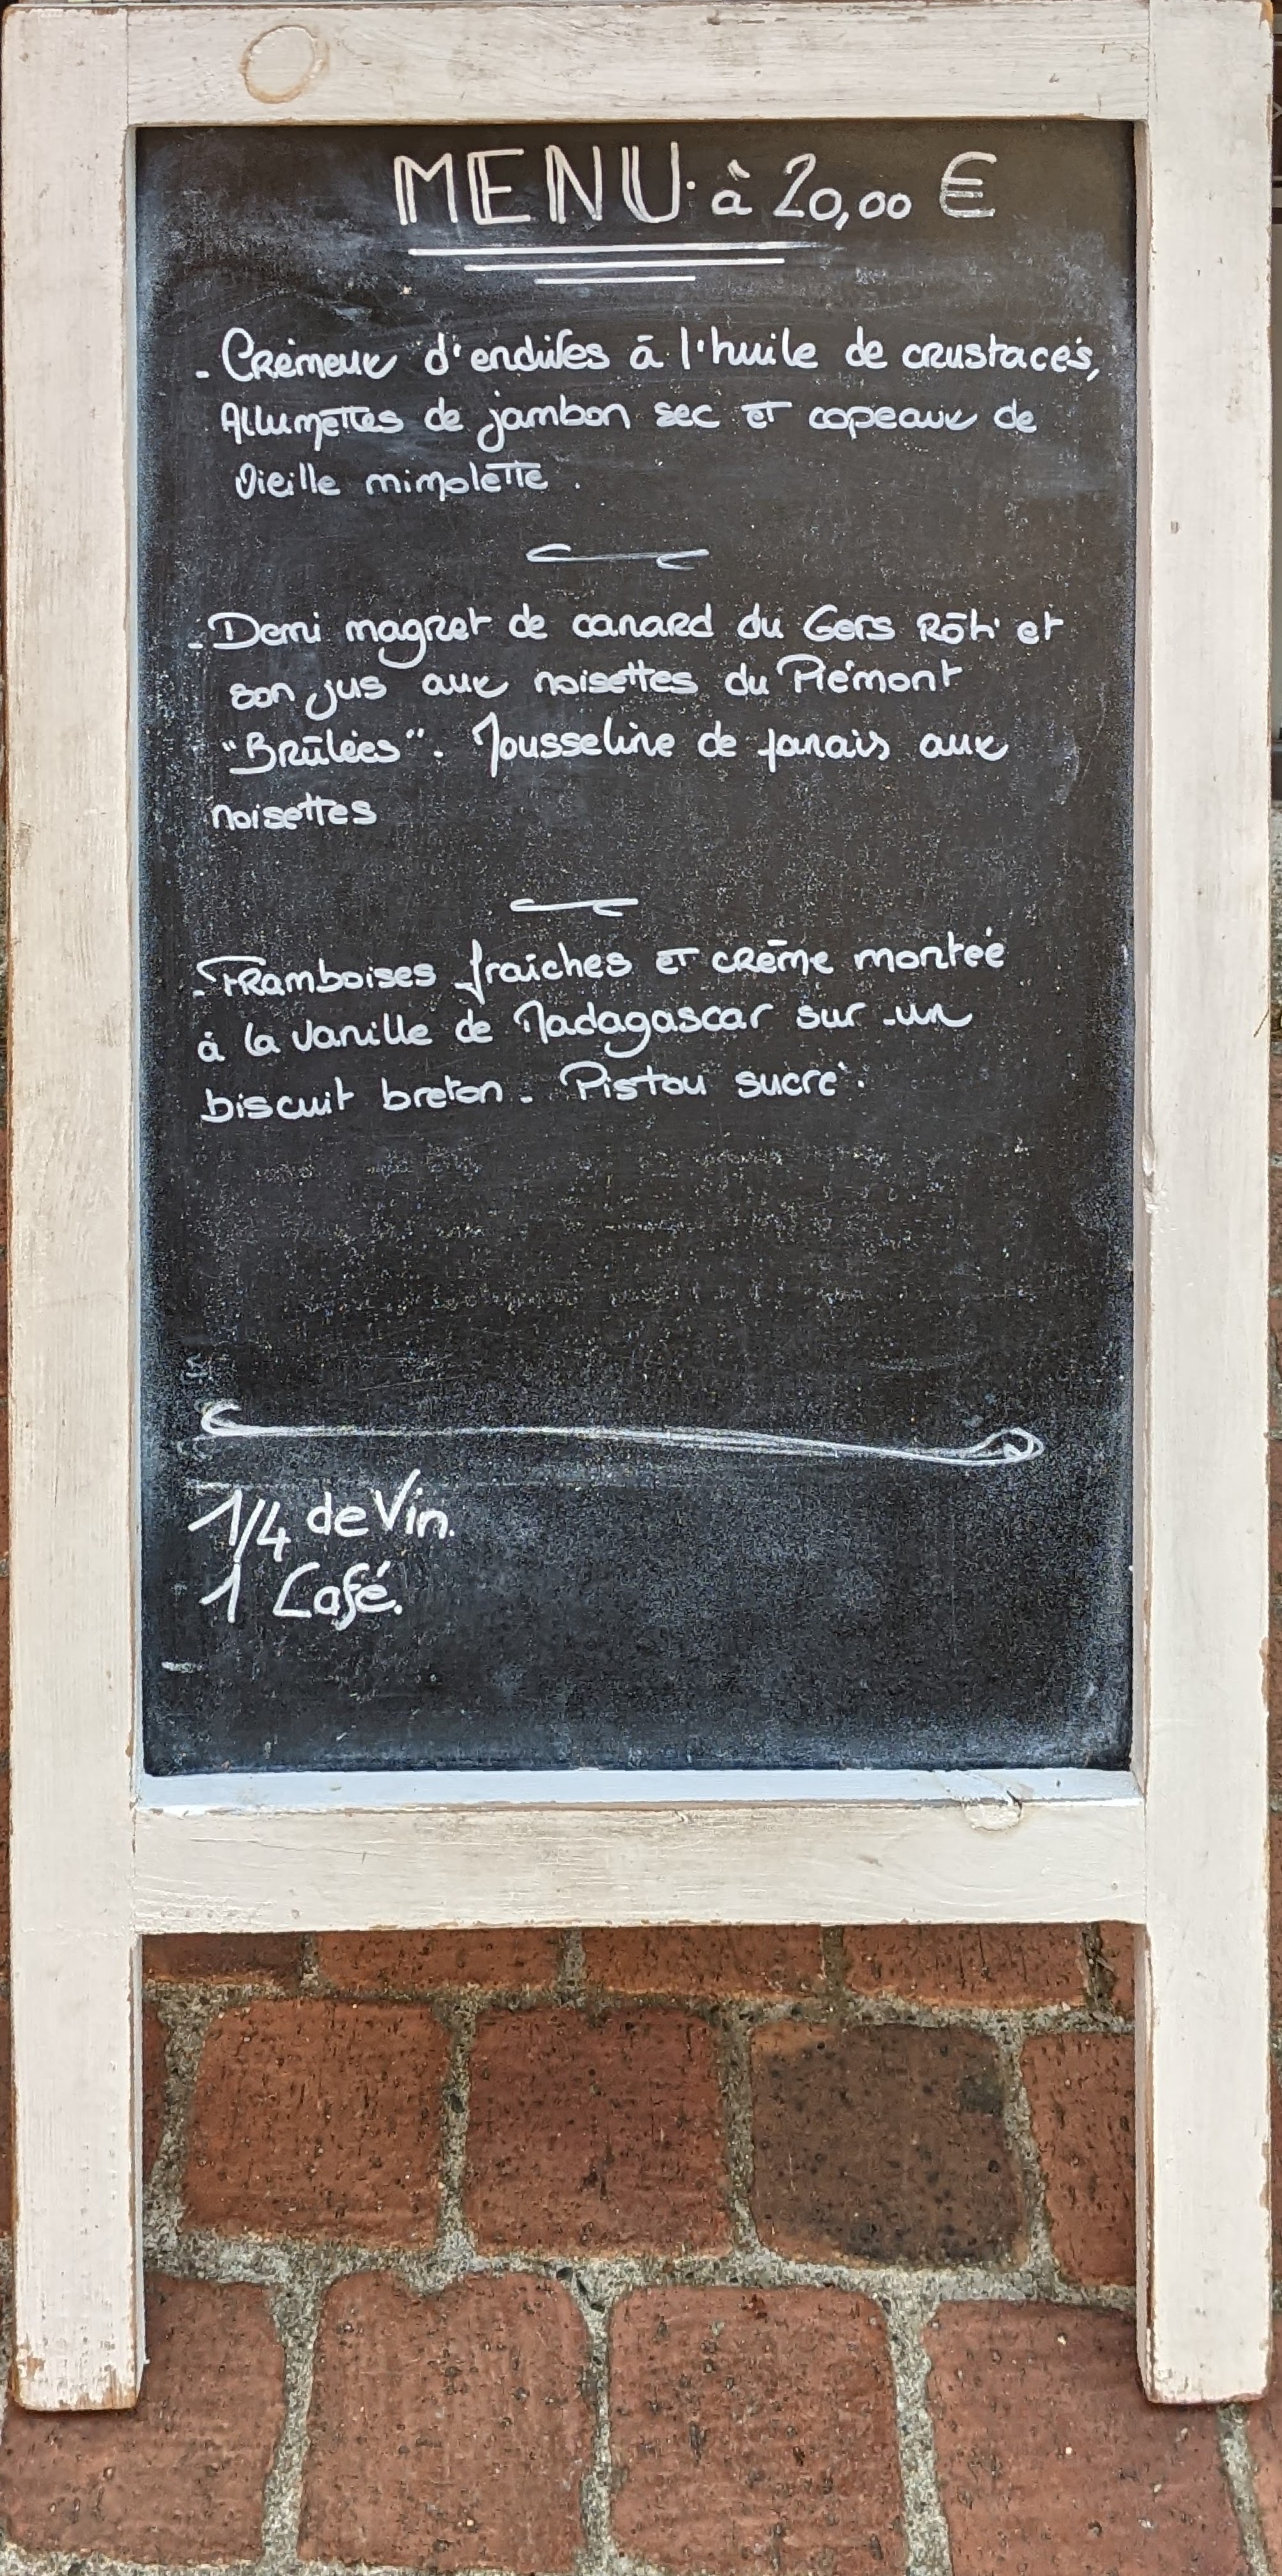 MENU à 20,00 €
- Crémeux d'endives à l'huile de crustacés,
Allumettes de jambon sec et copeaux de
Vieille mimolette.
- Demi magret de canard du Gers Rôti et
son jus aux noisettes du Piémont
"Brûlées". Mousseline de panais aux
noisettes
- Framboises fraîches et crème montée
à la vanille de Madagascar sur un
biscuit breton. Pistou sucré.
1/4 de Vin.
1 Café.